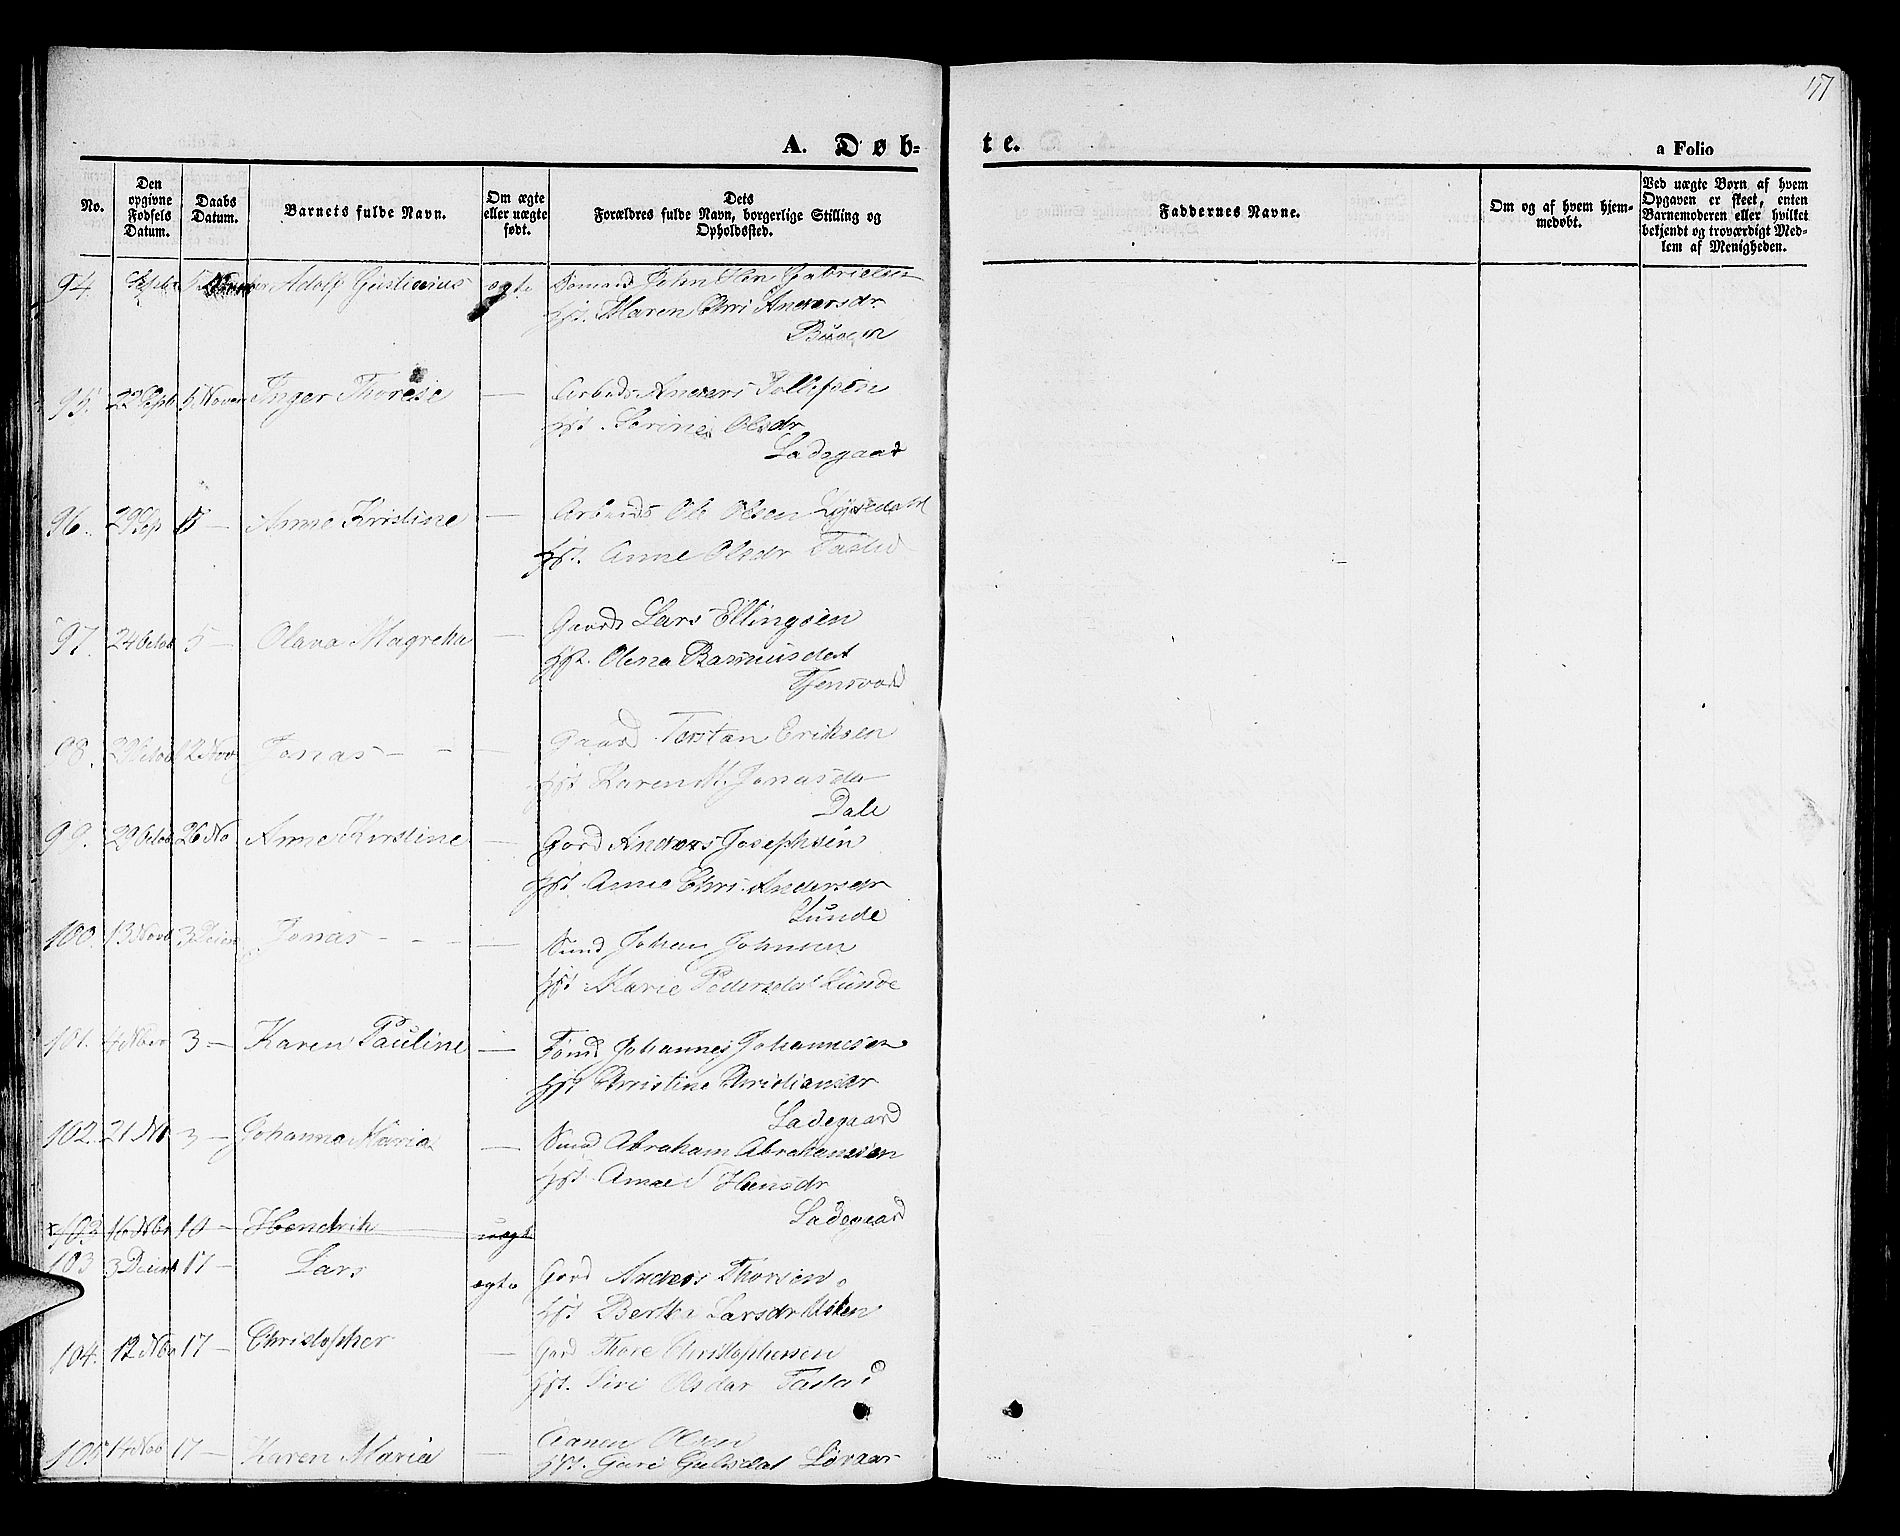 47
A. Døb-
te.
a Folio
No.
Den opgivne Fødsels Datum.
Daabs Datum.
Barnets fulde Navn.
Om ægte eller uægte født.
Dets Forældres fulde Navn, borgerlige Stilling og Opholdssted.
Faddernes Navne.
Om og af hvem hjemmedøbt.
Ved uægte Børn af hvem Opgaven er skeet, enten Barnemoderen eller hvilket bekjendt og troværdigt Medlem af Menigheden.
94. Adolf Gustianius ægte John Gabrielsen
Hst. Maren Chri Andersdr.
Buoen
95. 22 Sept 5 Novem Inger Therese — Arbeids Anders Tollefsen
Hst. Serine Olsdr
Ladegaar
96. 29 Sep 5 — Anne Kristine — Arbeids Ole Olsen
Hst. Anne Olsdr Tasta
97. 24 Octob 5 — Olava Magretha — Gaards Lars Ellingsen
Hst. Olena Rasmusdat
Tjensvold
98. 12 Nov Jonas — Gaard Torstan Eriksen
Hst Karen M. Jonasda
Dale
99. 29 Octob 26 No Anne Kirstine — Gord Anders Josephsen
Hst. Anne Chri. Andersdr
Lunde
100. 13 Novb 3 Decem Jonas — Johan Johnsen
Hst Marie Pedersdat Lunde
101. 4 Nbr 3 — Karen Pauline — Johannes Johannesen
Hst Christine Christiansdr
Ladegaard
102. 21 No 3 — Johanna Maria — Abraham Abrahamsen
Hst. Anne S Hansdr
Ladegaard
103 16 Nbr 10 — Hendrik uægt
103 3 Decem 17 — Lars ægte Gord Anders Thorsen
Hst Bertha Larsdr Ulsken
104. 12 Nov 17 — Christopher — Gord Thore Christophersen
Hst. Siri Olsdar Tasta
105 14 Nov 17 — Karen Maria — Aanen Olsen
Hst. Guri